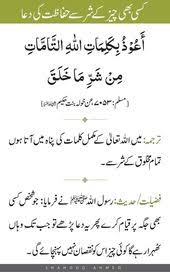 کسی بھی چیز کے شر سے حفاظت کی دعا
أَعُوْذُ بِكَلِمَاتِ اللّٰهِ التَّامَّاتِ
مِنْ شَرِّ مَا خَلَقَ
(مسلم: ۷۰۵۳، عن خولہ بنت حکیم)
ترجمہ: میں اللہ تعالیٰ کے مکمل کلمات کی پناہ میں آتا ہوں
تمام مخلوق کے شر سے۔
فضیلت/حدیث: رسول اللہ ﷺ نے فرمایا: جو شخص کسی
بھی جگہ پر قیام کرے پھر یہ دعا پڑھے تو جب تک وہاں
ٹھہرا رہے گا کوئی چیز اس کو نقصان نہیں پہنچائے گی۔
SHAHOOD AHMED